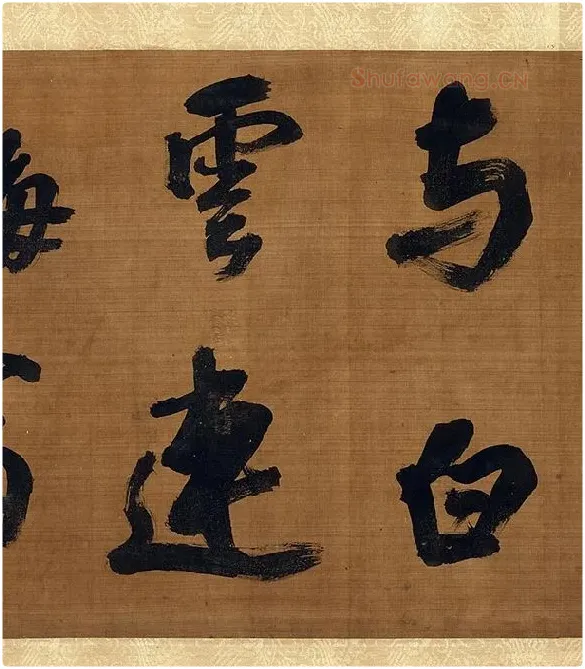 Shufawang.CN
与白
雲連